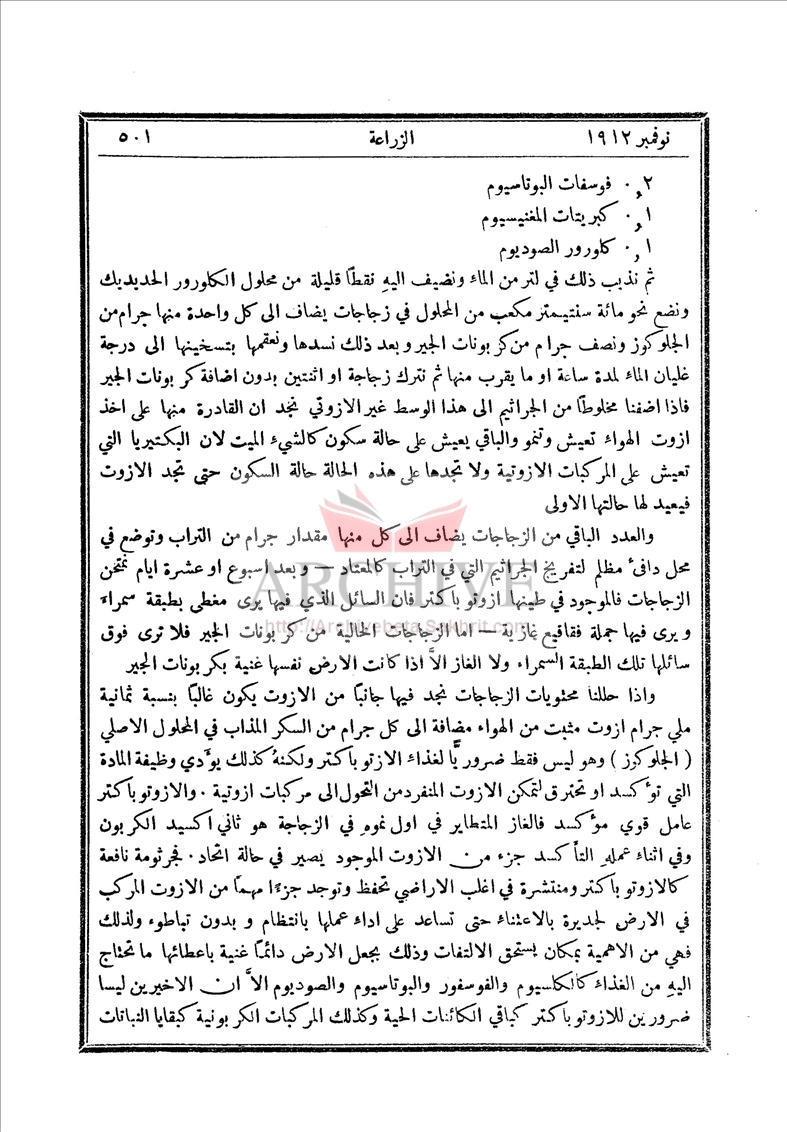 نوفمبر ١٩١٢ الزراعة ٥٠١
٠٫٢ فوسفات البوتاسيوم
٠٫١ كبريتات المغنيسيوم
٠٫١ كلورور الصوديوم
ثم نذيب ذلك في لتر من الماء ونضيف اليهِ نقطًا قليلة من محلول الكلورور الحديديك
ونضع نحو مائة سنتيمتر مكعب من المحلول في زجاجات يضاف الى كل واحدة منها جرام من
الجلوكوز ونصف جرام من كربونات الجير وبعد ذلك نسدها ونعقمها بتسخينها الى درجة
غليان الماء لمدة ساعة او ما يقرب منها ثم نترك زجاجة او اثنتين بدون اضافة كربونات الجير
فاذا اضفنا مخلوطًا من الجراثيم الى هذا الوسط غير الازوتي نجد ان القادرة منها على اخذ
ازوت الهواء تعيش وتنمو والباقي يعيش على حالة سكون كالشيء الميت لان البكتيريا التي
تعيش على المركبات الازوتية ولا تجدها على هذه الحالة حالة السكون حتى تجد الازوت
فيعيد لها حالتها الاولى
والعدد الباقي من الزجاجات يضاف الى كل منها مقدار جرام من التراب وتوضع في
محل دافئ مظلم لتفريخ الجراثيم التي في التراب كالمعتاد — وبعد اسبوع او عشرة ايام نمتحن
الزجاجات فالموجود في طينها ازوتو باكتر فان السائل الذي فيها يرى مغطى بطبقة سمراء
ويرى فيها جملة فقاقيع غازية — اما الزجاجات الخالية من كربونات الجير فلا ترى فوق
سائلها تلك الطبقة السمراء ولا الغاز الاَّ اذا كانت الارض نفسها غنية بكربونات الجير
واذا حللنا محتويات الزجاجات نجد فيها جانبًا من الازوت يكون غالبًا بنسبة ثمانية
ملي جرام ازوت مثبت من الهواء مضافة الى كل جرام من السكر المذاب في المحلول الاصلي
( الجلوكوز ) وهو ليس فقط ضروريًّا لغذاء الازتو باكتر ولكنهُ كذلك يؤدي وظيفة المادة
التي تؤكسد او تحترق لتمكن الازوت المنفرد من التحول الى مركبات ازوتية . والازوتو باكتر
عامل قوي مؤكسد فالغاز المتطاير في اول نموهِ في الزجاجة هو ثاني اكسيد الكربون
وفي اثناء عملهِ التأكسد جزء من الازوت الموجود يصير في حالة اتحاد . فجرثومة نافعة
كالازوتو باكتر ومنتشرة في اغلب الاراضي تحفظ وتوجد جزءًا مهمًا من الازوت المركب
في الارض لجديرة بالاعتناء حتى تساعد على اداء عملها بانتظام و بدون تباطوء ولذلك
فهي من الاهمية بمكان يستحق الالتفات وذلك بجعل الارض دائمًا غنية باعطائها ما تحتاج
اليهِ من الغذاء كالكلسيوم والفوسفور والبوتاسيوم والصوديوم الاَّ ان الاخيرين ليسا
ضرورين للازوتو باكتر كباقي الكائنات الحية وكذلك المركبات الكربونية كبقايا النباتات
ARCHIVE
http://Archivebeta.Sakhrit.com